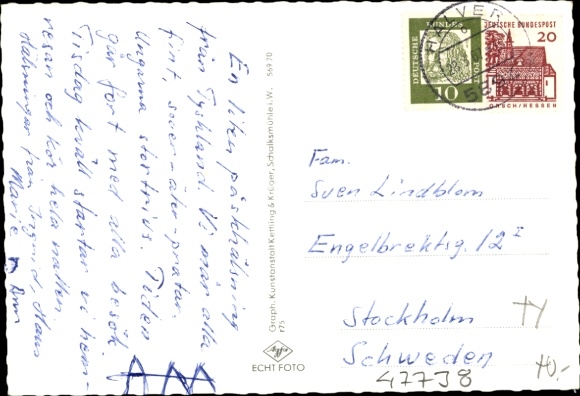 En liten påskhälsning
från Tyskland. Vi mår alla
fint, sover-äter-pratar.
Ungarna stortrivs. Tiden
går fort med alla besök.
Tisdag kväll startar vi hem-
resan och kör hela natten.
Hälsningar från Ingrid, Hans
Marie
AM
Graph. Kunstanstalt Kettling & Krüger, Schalksmühle i. W. 56970
r75
Agfa
ECHT FOTO
DEUTSCHE BUNDESPOST
10
DEUTSCHE BUNDESPOST
20
LORSCH/HESSEN
HALVER
Fam.
Sven Lindblom
Engelbrektsg. 12 I
Stockholm
Schweden
47738
40,-